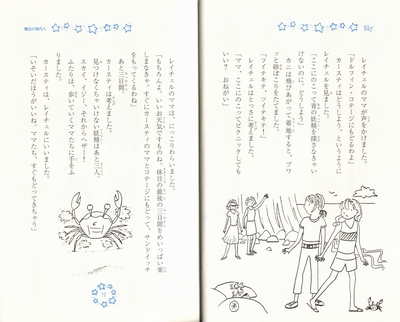 見ました。
レイチェルのママが声をかけました。
「ドルフィン・コテージにもどるわよ」
カースティはどうしよう、というように
レイチェルを見ました。
「ここにのこって青の妖精を探さなきゃい
けないのに、どうしよう」
カニは飛びあがって着地すると、プワ
ッと砂ぼこりをたてました。
「ツイテキテ、ツイテキテ！」
レイチェルはとっさに考えました。
「ママ、ここにのこってピクニックしても
いい？　おねがい」
レイチェルのママは、にっこりわらいました。
「もちろんよ。いいお天気ですものね。休日の最後の三日間をめいっぱい楽
しまなきゃ。すぐにカースティのママとコテージにもどって、サンドイッチ
をもってくるわね」
あと三日間。
カースティは考えました。
見つけなくちゃいけない妖精はあと三人。
スカイ、イジー、それからヘザー！
ふたりは、歩いていくママたちに手をふ
りました。
カースティは、レイチェルにいいました。
「いそいだほうがいいね。ママたち、すぐもどってきちゃう」